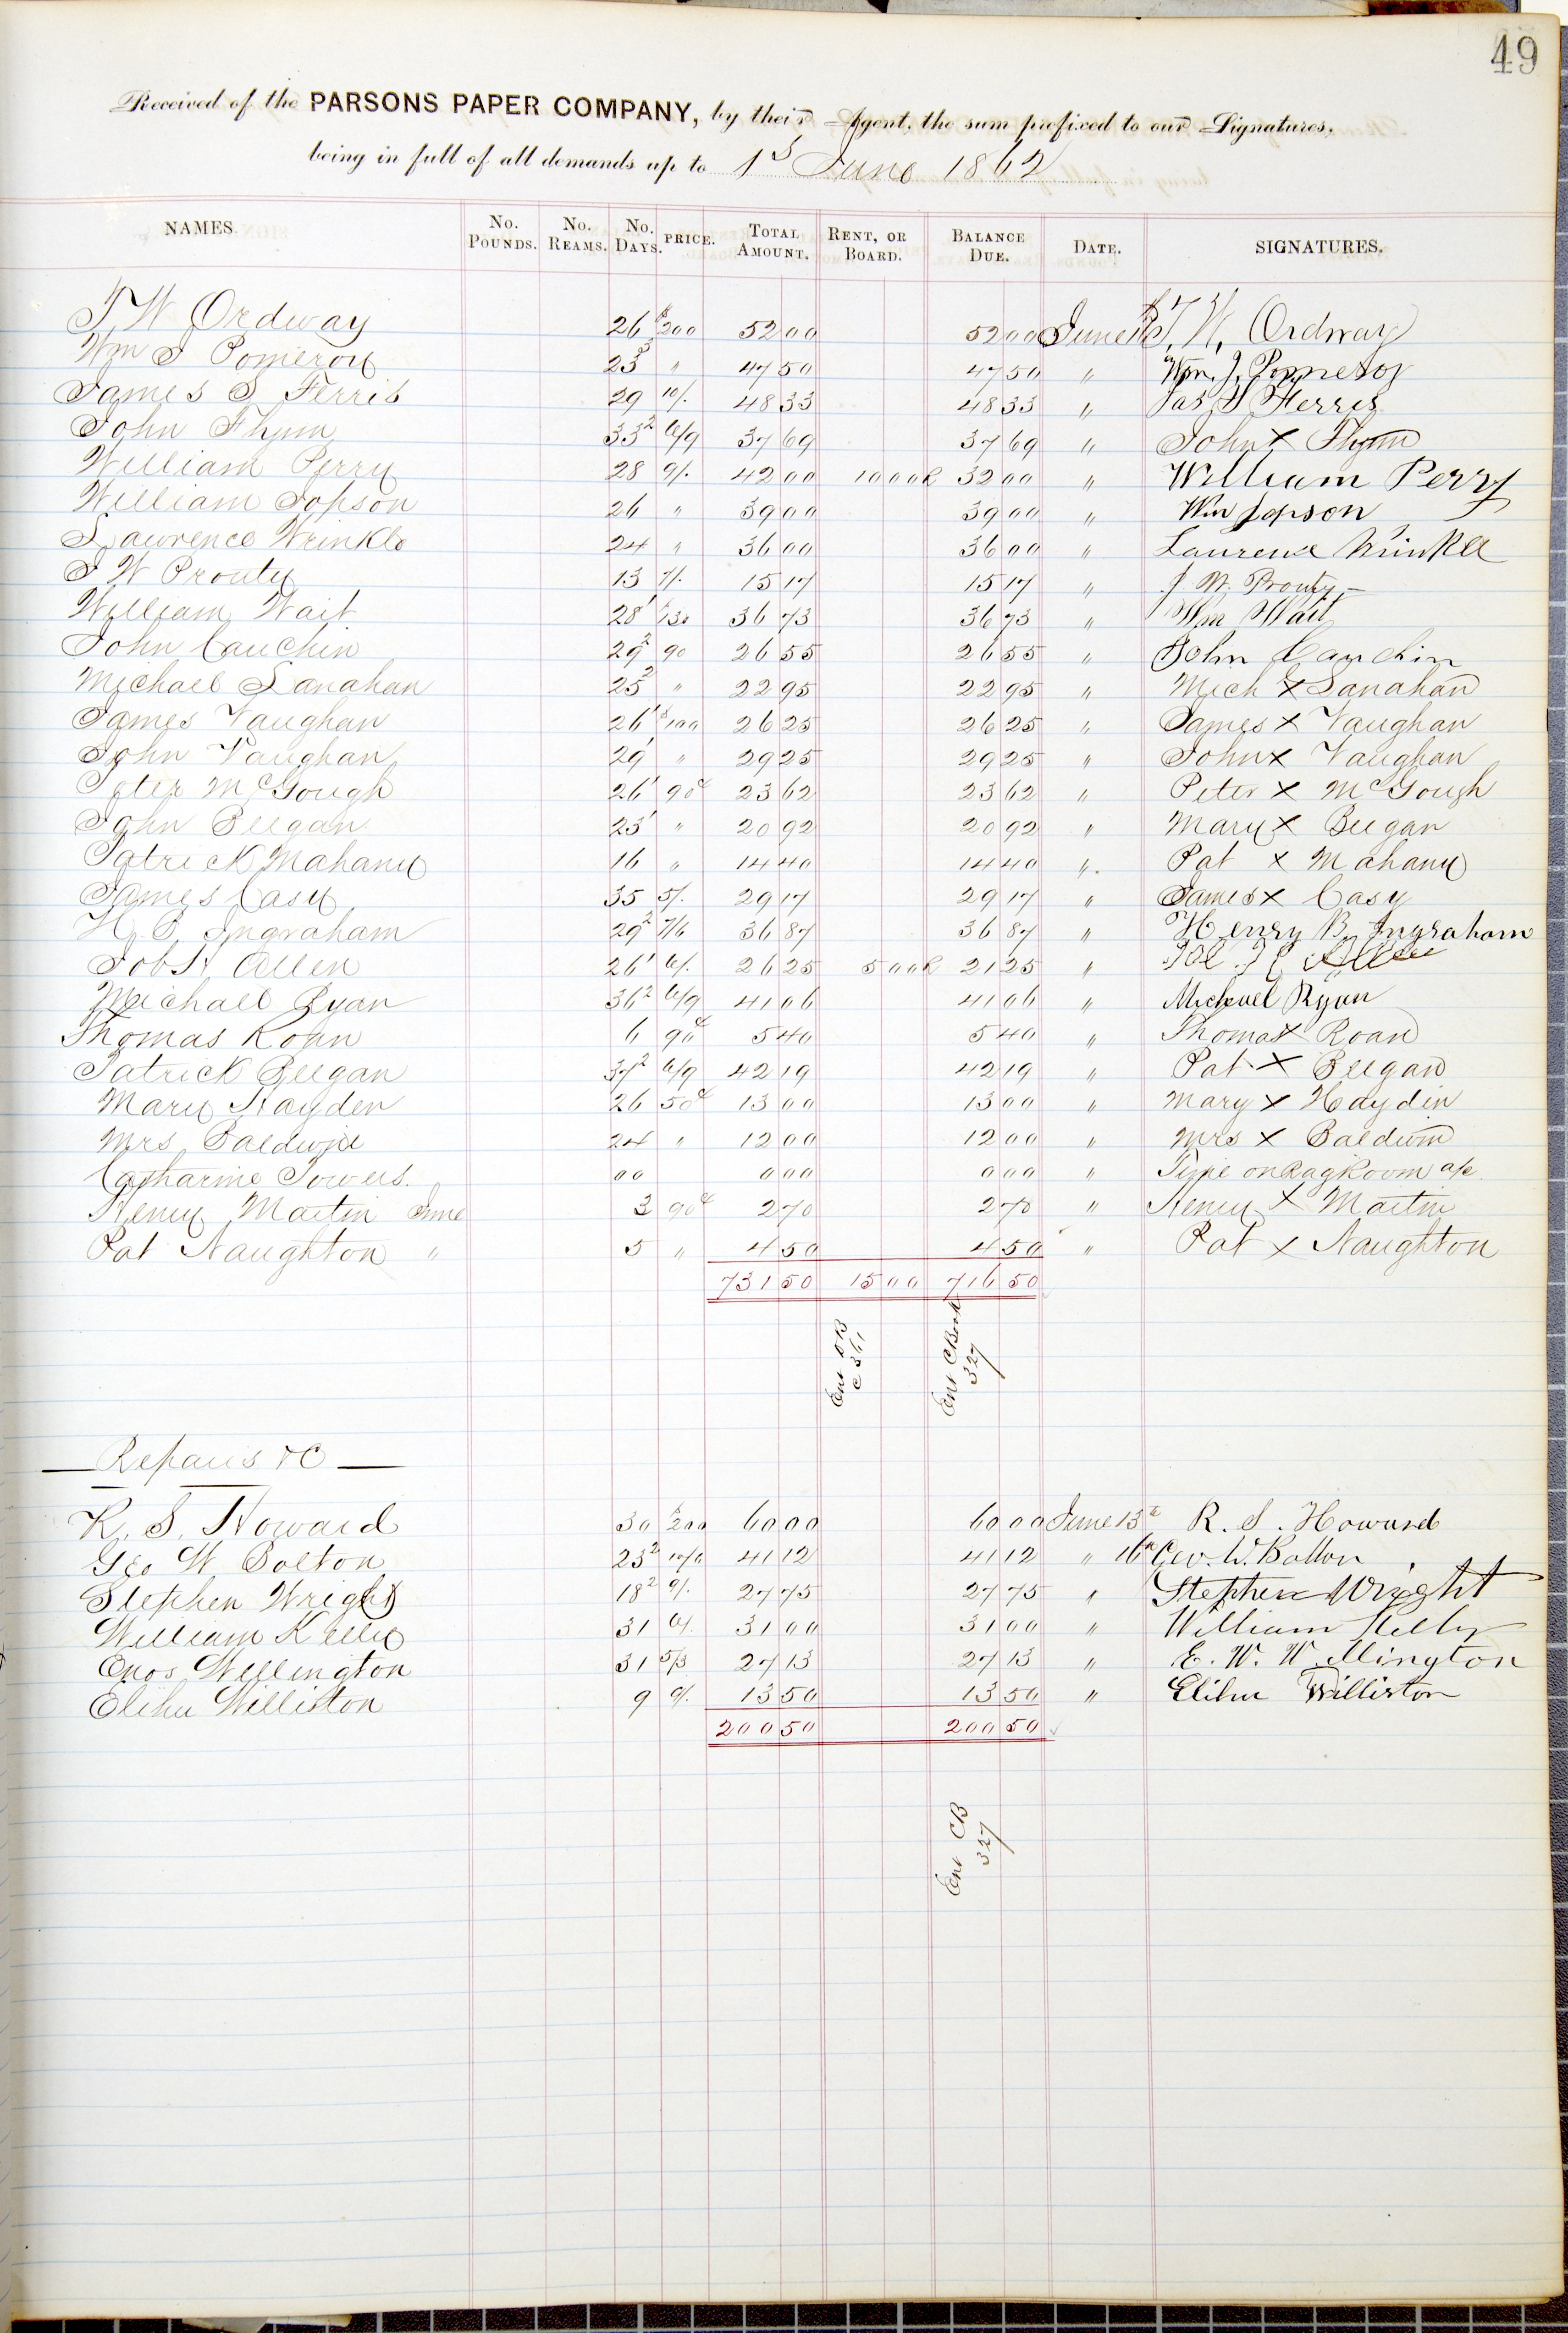 49
Received of the PARSONS PAPER COMPANY, by their Agent, the sum prefixed to our Signatures,
being in full of all demands up to 1st June 1862
NAMES. No. POUNDS. No. REAMS. No. DAYS. PRICE. TOTAL AMOUNT. RENT, OR BOARD. BALANCE DUE. DATE. SIGNATURES.
J W Ordway 26 $200 52 00 52 00 June J. W. Ordway
Wm J Pomeroy 23³ " 47 50 47 50 " Wm. J. Pomeroy
James S Ferris 29 10/. 48 33 48 33 " Jas S Ferris
John Flynn 33² 6/9 37 69 37 69 " John X Flynn
William Perry 28 9/. 42 00 10 00 R 32 00 " William Perry
William Jopson 26 " 39 00 39 00 " Wm Jopson
Lawrence Wrinkle 24 " 36 00 36 00 " Laurence Wrinkle
J W Prouty 13 7/. 15 17 15 17 " J W. Prouty
William Wait 28¹ 130 36 73 36 73 " Wm Wait
John Cauchin 29² 90 26 55 26 55 " John Cauchin
Michael Lanahan 25² " 22 95 22 95 " Mich X Lanahan
James Vaughan 26¹ $100 26 25 26 25 " James X Vaughan
John Vaughan 29¹ " 29 25 29 25 " John X Vaughan
Peter McGough 26¹ 90c 23 62 23 62 " Peter X McGough
John Beegan 23¹ " 20 92 20 92 " Mary X Beegan
Patrick Mahany 16 " 14 40 14 40 " Pat X Mahany
James Casy 35 5/. 29 17 29 17 " James X Casy
H. B. Ingraham 29² 7/6 36 87 36 87 " Henry B. Ingraham
Job H. Allen 26¹ 6/. 26 25 5 00 R 21 25 " Allen
Michael Ryan 36² 6/9 41 06 41 06 " Michael Ryan
Thomas Roan 6 90c 5 40 5 40 " Thomas X Roan
Patrick Beegan 37² 6/9 42 19 42 19 " Pat X Beegan
Mary Hayden 26 50c 13 00 13 00 " Mary X Haydin
Mrs Baldwin 24 " 12 00 12 00 " Mrs X Baldwin
Catharine Powers. 00 0 00 0 00 " Time on Rag Room a/c
Henry Martin June 3 90c 2 70 2 70 " Henry X Martin
Pat Naughton " 5 " 4 50 4 50 " Pat X Naughton
731 50 15 00 716 50
Ent DB
C 361
Ent CBook
327
Repairs &C
R. S. Howard 30 $200 60 00 60 00 June 13th R. S. Howard
Geo W Bolton 23² 10/6 41 12 41 12 " 16th Geo. W. Bolton
Stephen Wright 18² 9/. 27 75 27 75 " Stephen Wright
William Kelly 31 6/. 31 00 31 00 " William Kelly
Enos Wellington 31 5/3 27 13 27 13 " E. W. Wellington
Elihu Williston 9 9/. 13 50 13 50 " Elihu Williston
200 50 200 50
Ent CB
327